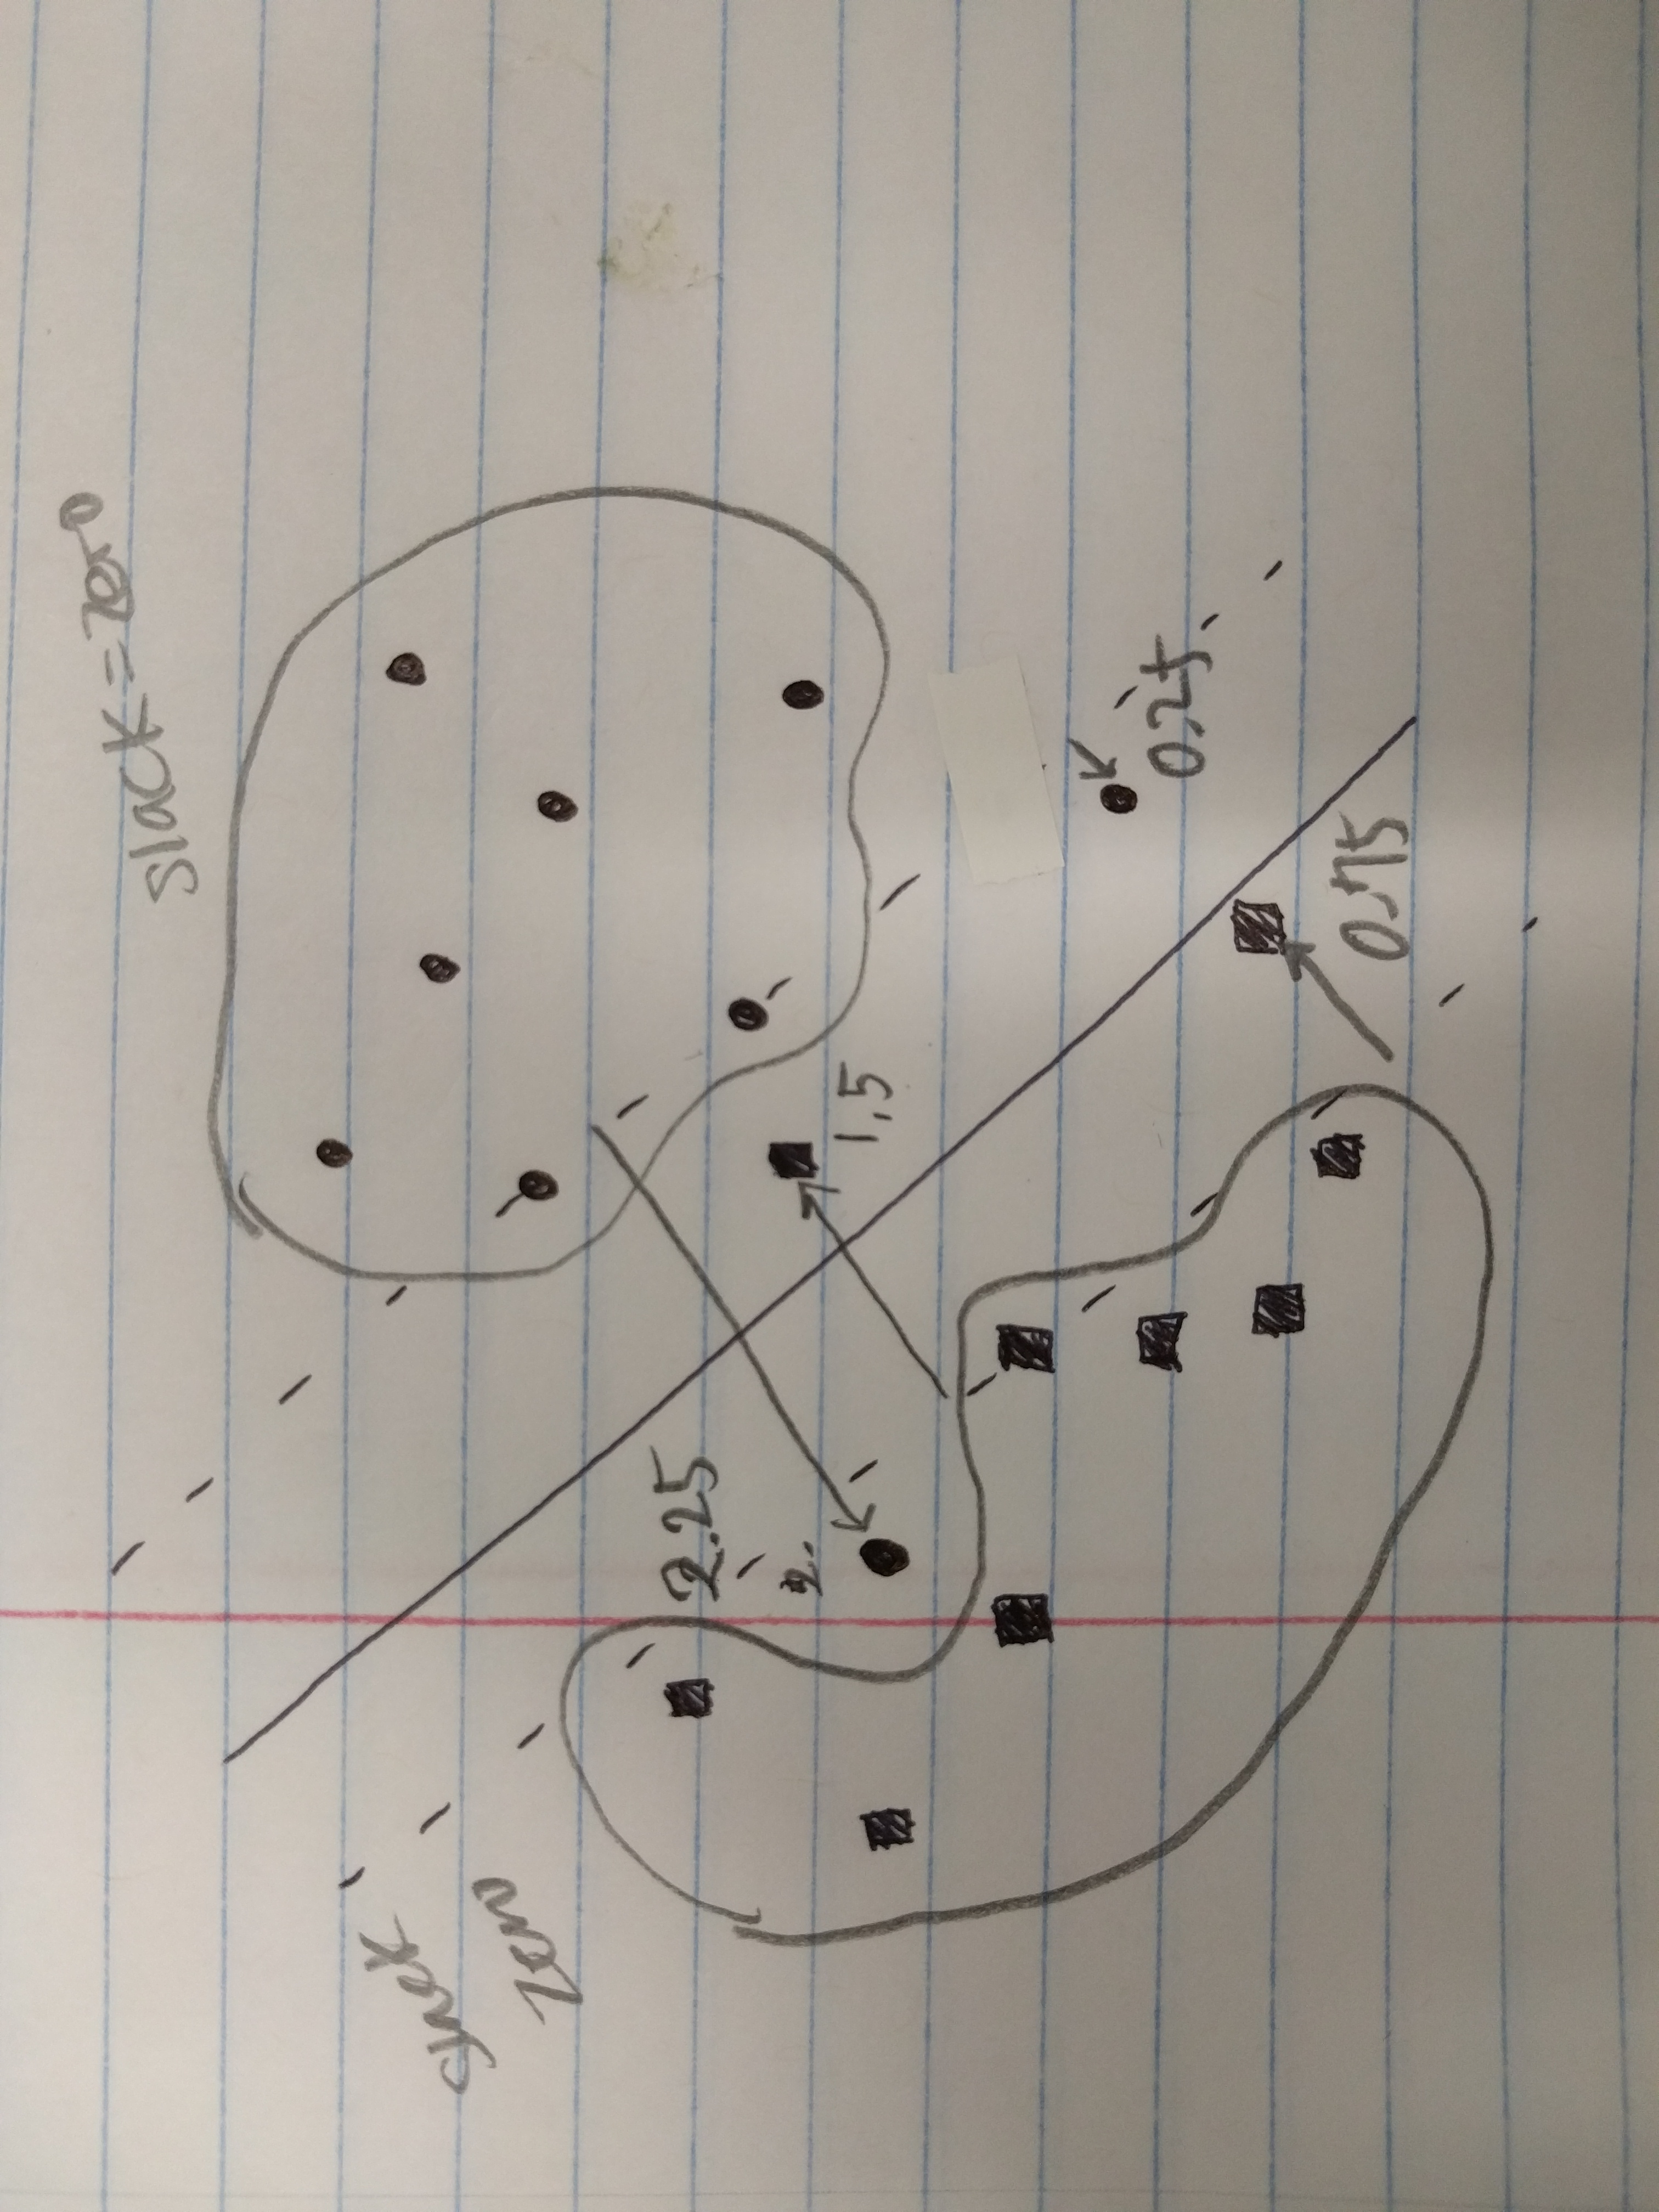 slack = zero
slack
zero
2.25
2.
1.5
0.25
0.75